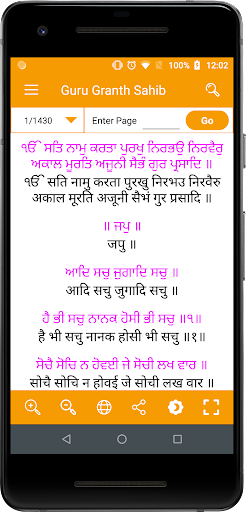 100% 12:02
Guru Granth Sahib
1/1430 Enter Page Go
ੴ ਸਤਿ ਨਾਮੁ ਕਰਤਾ ਪੁਰਖੁ ਨਿਰਭਉ ਨਿਰਵੈਰੁ
ਅਕਾਲ ਮੂਰਤਿ ਅਜੂਨੀ ਸੈਭੰ ਗੁਰ ਪ੍ਰਸਾਦਿ ॥
ੴ सति नामु करता पुरखु निरभउ निरवैरु
अकाल मूरति अजूनी सैभं गुर प्रसादि ॥
॥ ਜਪੁ ॥
जपु ॥
ਆਦਿ ਸਚੁ ਜੁਗਾਦਿ ਸਚੁ ॥
आदि सचु जुगादि सचु ॥
ਹੈ ਭੀ ਸਚੁ ਨਾਨਕ ਹੋਸੀ ਭੀ ਸਚੁ ॥੧॥
है भी सचु नानक होसी भी सचु ॥१॥
ਸੋਚੈ ਸੋਚਿ ਨ ਹੋਵਈ ਜੇ ਸੋਚੀ ਲਖ ਵਾਰ ॥
सोचै सोचि न होवई जे सोची लख वार ॥